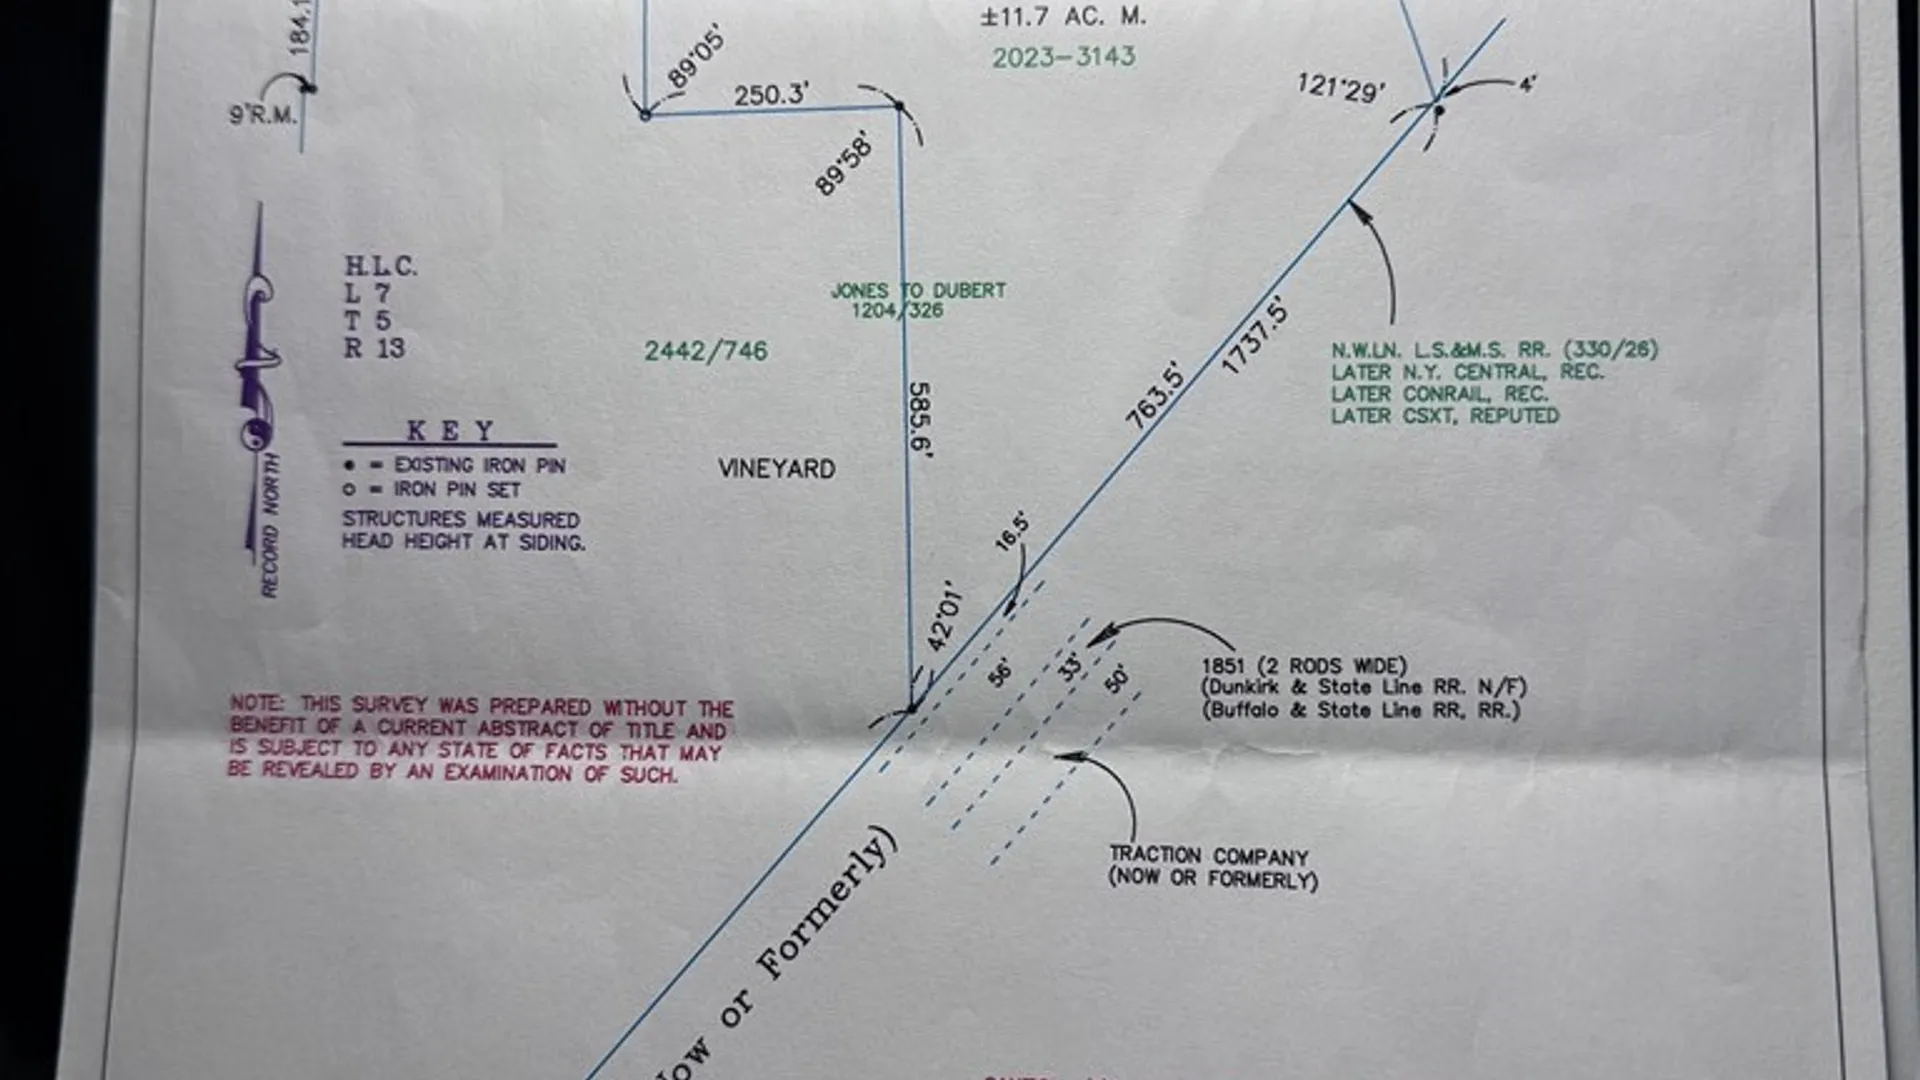 184.1
±11.7 AC. M.
2023-3143
89°05'
250.3'
121°29'
4'
9"R.M.
89°58'
H.L.C.
L 7
T 5
R 13
JONES TO DUBERT
1204/326
2442/746
585.6'
763.5'
1737.5'
N.W.LN. L.S.&M.S. RR. (330/26)
LATER N.Y. CENTRAL, REC.
LATER CONRAIL, REC.
LATER CSXT, REPUTED
KEY
• = EXISTING IRON PIN
o = IRON PIN SET
STRUCTURES MEASURED
HEAD HEIGHT AT SIDING.
RECORD NORTH
VINEYARD
16.5'
42°01'
56'
33'
50'
1851 (2 RODS WIDE)
(Dunkirk & State Line RR. N/F)
(Buffalo & State Line RR, RR.)
NOTE: THIS SURVEY WAS PREPARED WITHOUT THE
BENEFIT OF A CURRENT ABSTRACT OF TITLE AND
IS SUBJECT TO ANY STATE OF FACTS THAT MAY
BE REVEALED BY AN EXAMINATION OF SUCH.
TRACTION COMPANY
(NOW OR FORMERLY)
ow or Formerly)